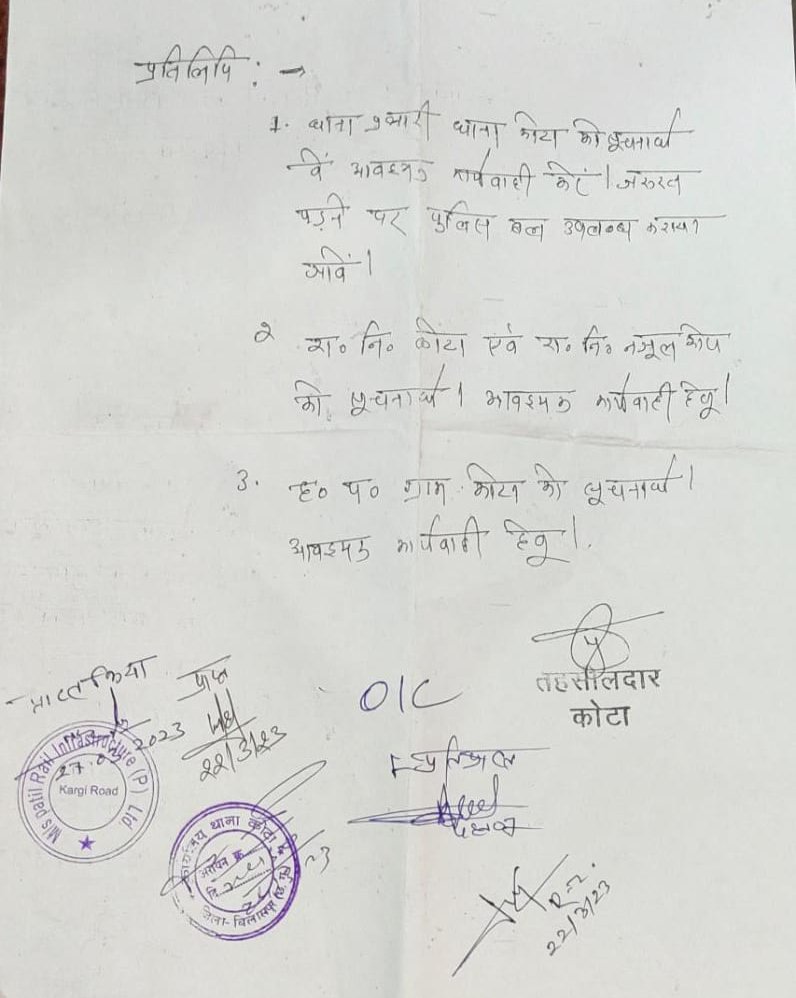 प्रतिलिपि :→
1. थाना प्रभारी थाना कोटा को सूचनार्थ
आवश्यक कार्यवाही करें। जरुरत
पड़ने पर पुलिस बल उपलब्ध कराया
जावें।
2 रा० नि० कोटा एवं रा० नि० नजूल
को सूचनार्थ। आवश्यक कार्यवाही हेतु।
3. ह० प० ग्राम कोटा को सूचनार्थ।
आवश्यक कार्यवाही हेतु।
तहसीलदार
कोटा
प्राप्त किया
2023
M/s Patil Rail Infrastructure (P) Ltd.
Kargi Road
प्राप्त
22/3/23
O/C
कार्यालय थाना कोटा
जिला-बिलासपुर (छ.ग.)
22/3/23